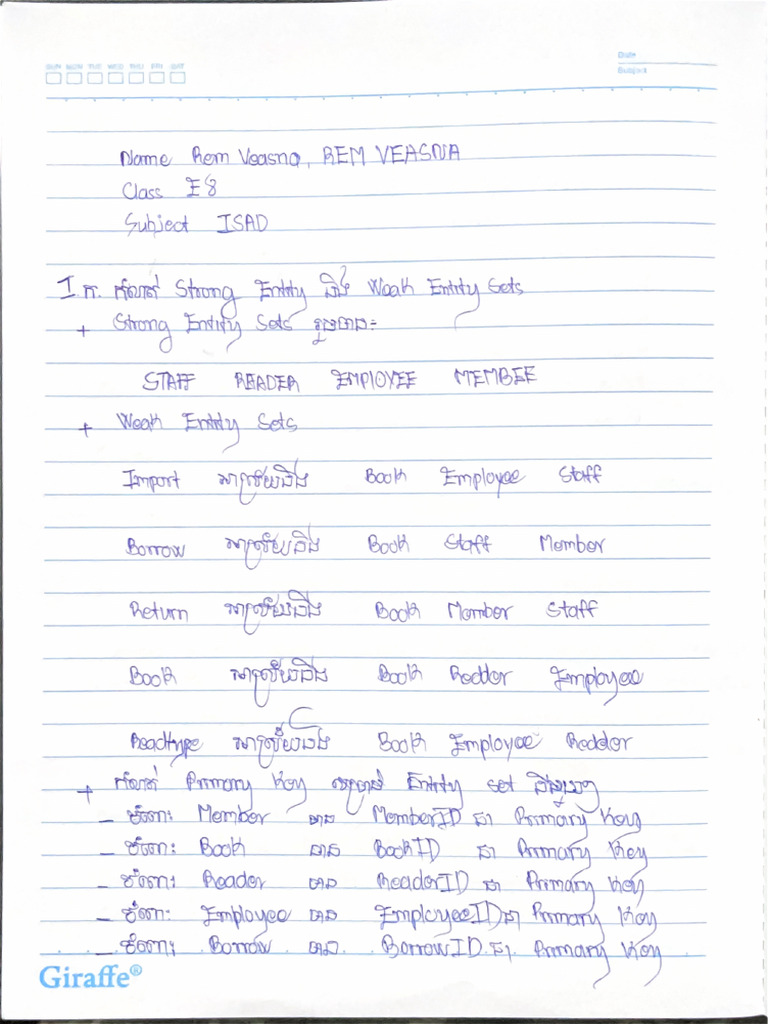 SUN MON TUE WED THU FRI SAT
Date
Subject
Name Rem Veasna, REM VEASNA
Class E8
Subject ISAD
I ក. កំណត់ Strong Entity និង Weak Entity Sets
+ Strong Entity Sets រួមមាន:
STAFF READER EMPLOYEE MEMBEE
+ Weak Entity Sets
Import អាស្រ័យនឹង Book Employee Staff
Borrow អាស្រ័យនឹង Book Staff Member
Return អាស្រ័យនឹង Book Member Staff
Book អាស្រ័យនឹង Book Redder Employee
Readtype អាស្រ័យនឹង Book Employee Redder
+ កំណត់ Primary Key សម្រាប់ Entity set នីមួយៗ
- ចំពោះ Member មាន MemberID ជា Primary Key
- ចំពោះ Book មាន BookID ជា Primary Key
- ចំពោះ Reader មាន ReaderID ជា Primary Key
- ចំពោះ Employee មាន EmployeeID ជា Primary Key
- ចំពោះ Borrow មាន BorrowID ជា Primary Key
Giraffe®